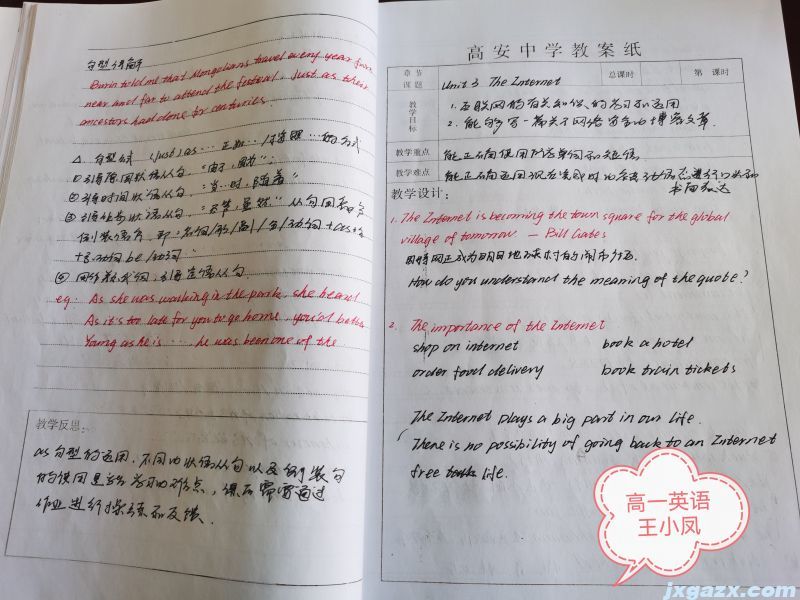 句型讲解
Burin told me that Mongolians travel every year from
near and far to attend the festival, just as their
ancestors had done for centuries.
△ 句型公式 (just) as … 正如 …/按照 …的方式
①引导原因状语从句，"由于，因为"；
②引导时间状语从句，"当…时，随着"
③引导让步状语从句，"尽管，虽然" 从句用部分
倒装语序，即：名词/形/副/分/动词+as+主
+ be/动词
④ 用作关系代词，引导定语从句
eg: As she was walking in the park, she heard
As it's too late for you to go home, you'd better
Young as he is …, he was been one of the
教学反思：
as 句型的运用，不同的状语从句以及倒装句
的使用是学习的难点，课后需要通过
作业进行操练和反馈.
高安中学教案纸
章节课题
Unit 3 The Internet
总课时
第 课时
教学目标
1. 互联网的有关知识的学习和运用
2. 能够写一篇关于网络安全的博客文章.
教学重点
能正确使用所学单词和短语
教学难点
能正确运用现在完成时的被动语态进行口头和
书面表达
教学设计：
1. The Internet is becoming the town square for the global
village of tomorrow — Bill Gates
因特网正成为明日地球村的闹市街区.
How do you understand the meaning of the quote?
2. The importance of the Internet
shop on internet book a hotel
order food delivery book train tickets
The Internet plays a big part in our life.
There is no possibility of going back to an Internet
free life.
高一英语
王小凤
jxgazx.com